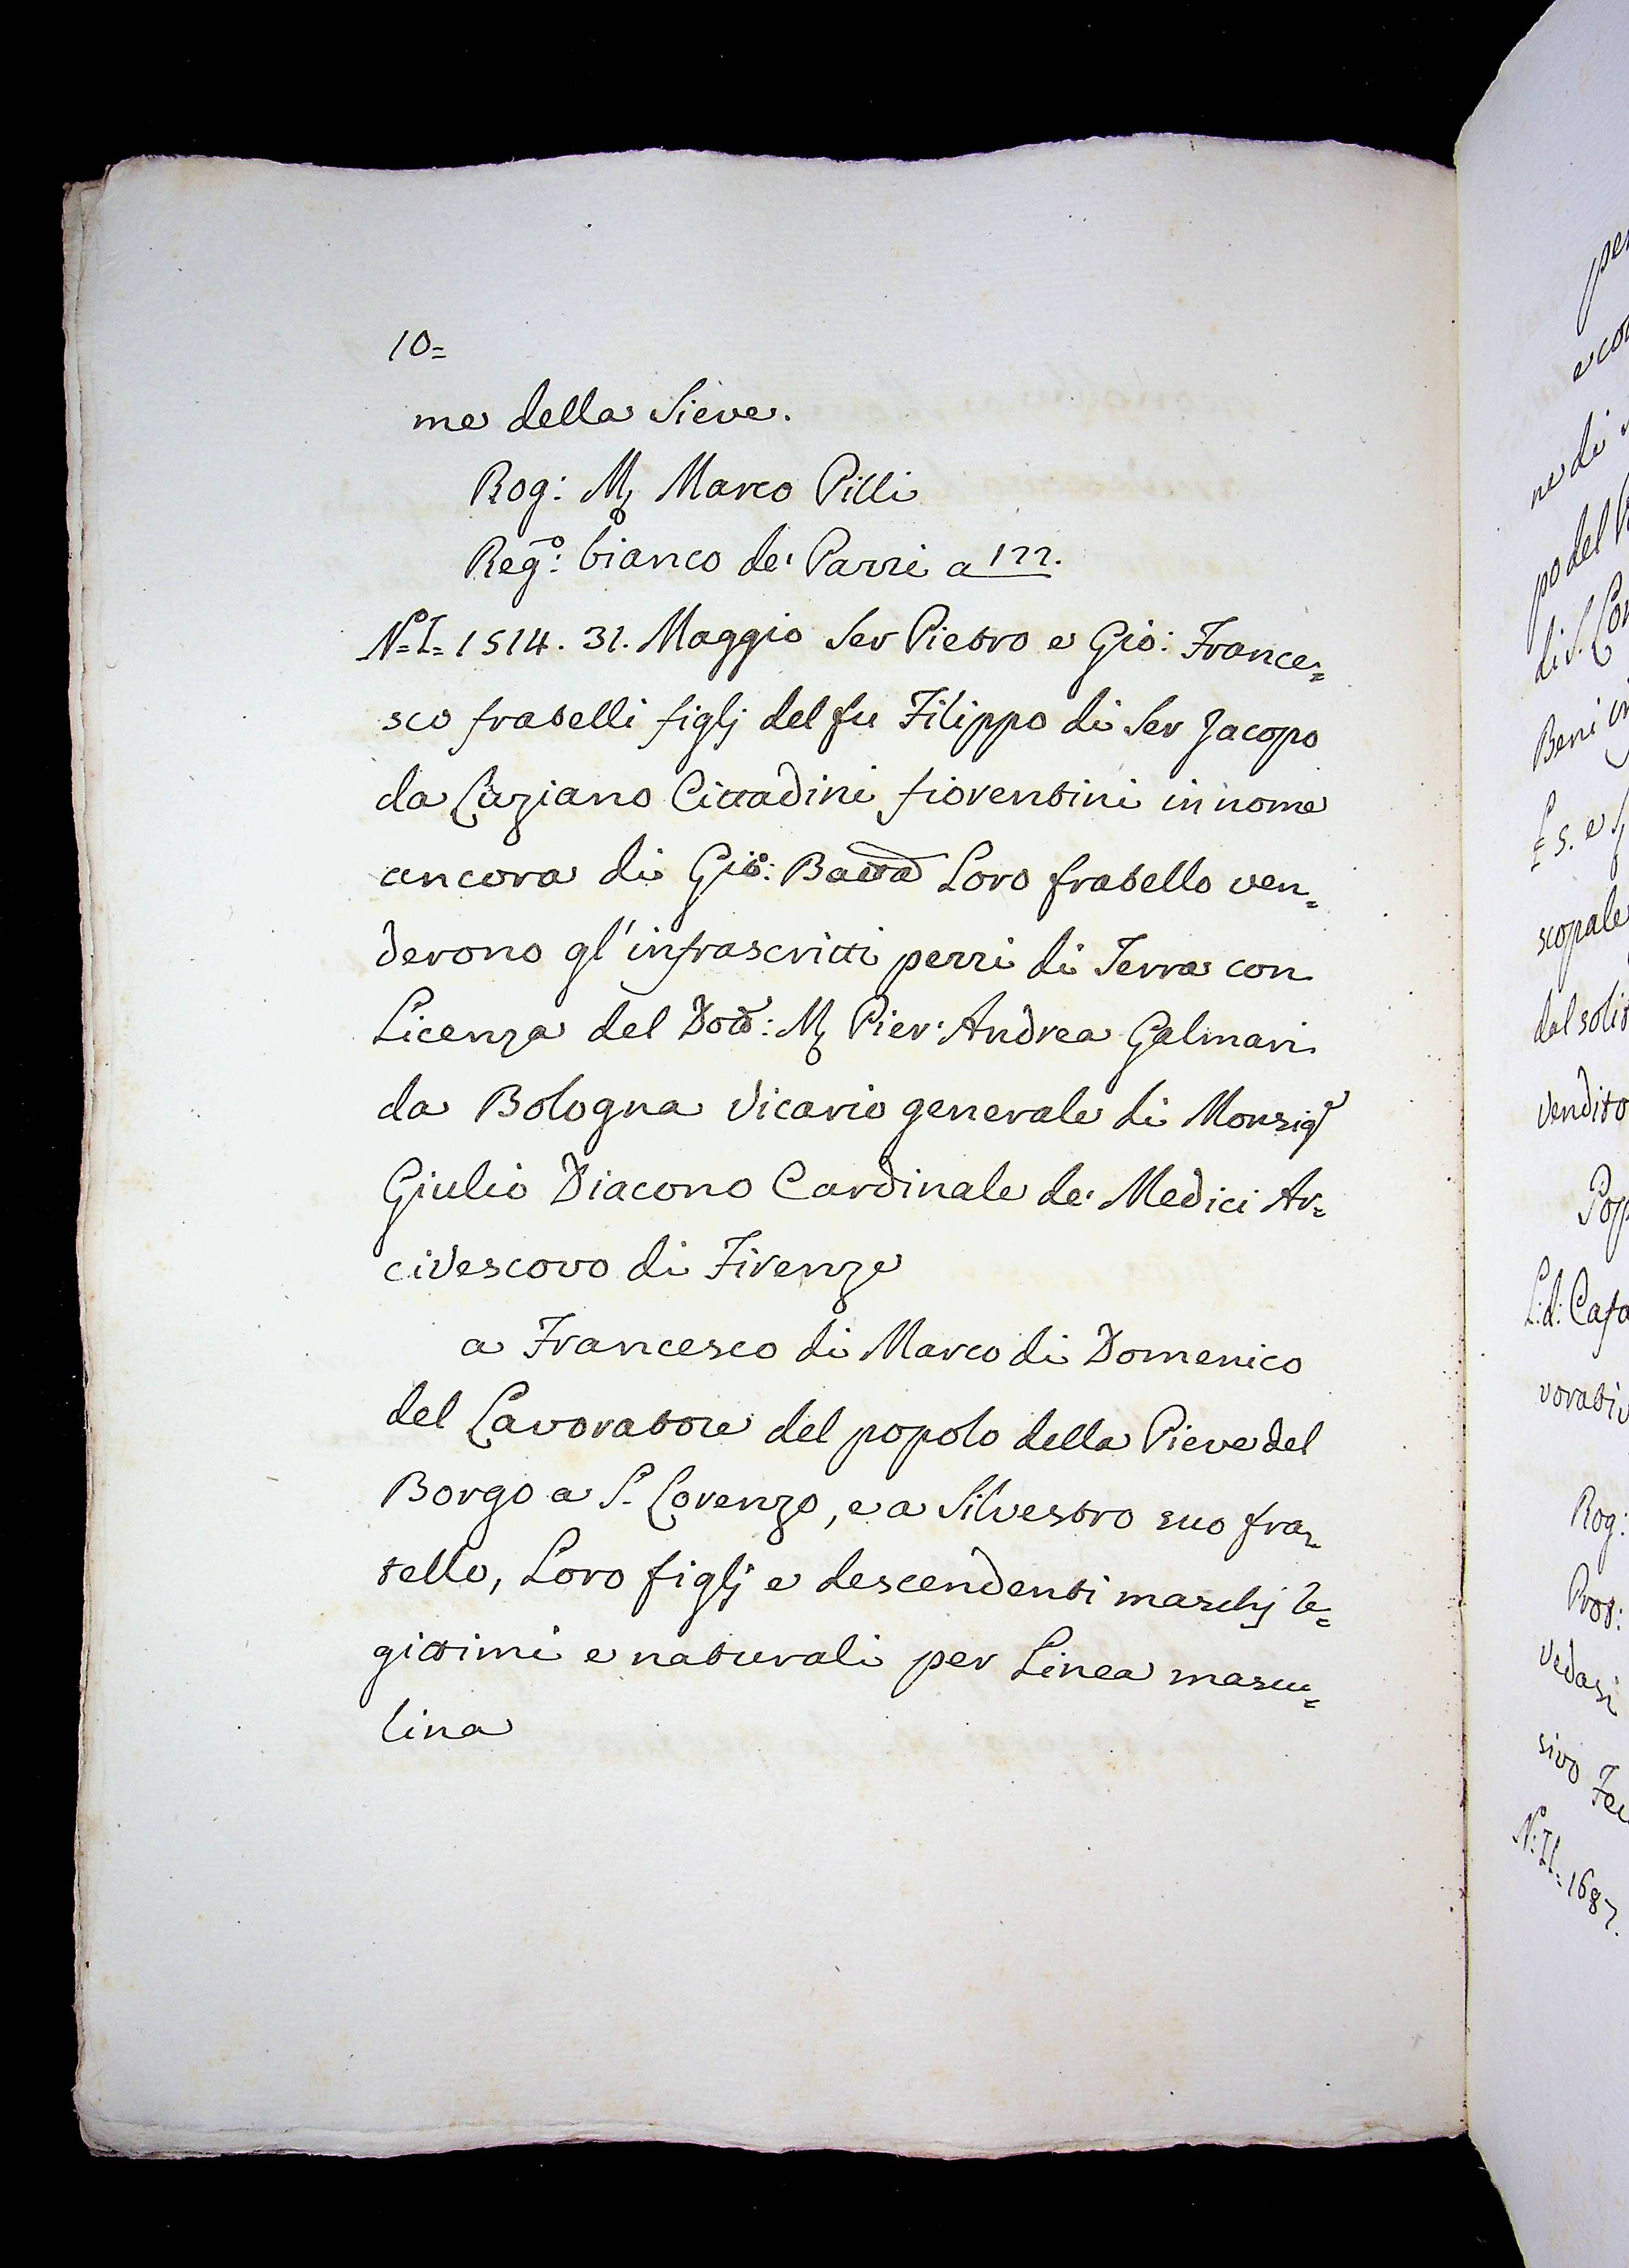 10=
me della Sieve.
Rog: Mr Marco Pilli
Rego: bianco de' Pazzi a 122.
No. I. 1514. 31. Maggio Ser Pietro e Gio: France=
sco fratelli figlj del fu Filippo di Ser Jacopo
da Luziano Cittadini fiorentini in nome
ancora di Gio: Batta Loro fratello ven=
derono gl'infrascritti pezzi di Terra con
Licenza del Dott: Mr Pier Andrea Galmari
da Bologna Vicario generale di Monsigr
Giulio Diacono Cardinale de' Medici Ar=
civescovo di Firenze
a Francesco di Marco di Domenico
del Lavoratore del popolo della Pieve del
Borgo a S. Lorenzo, e a Silvestro suo fra=
tello, Loro figlj e descendenti maschj le=
gittimi e naturali per Linea mascu=
lina
per
e co
ne di
po del
di S. Lor
Beni
£ 5. e
scopale
dal solit
vendito
Pop
L.d. Cafa
vorativ
Rog:
Prot:
Vedasi
sivo
N: II. 1687.